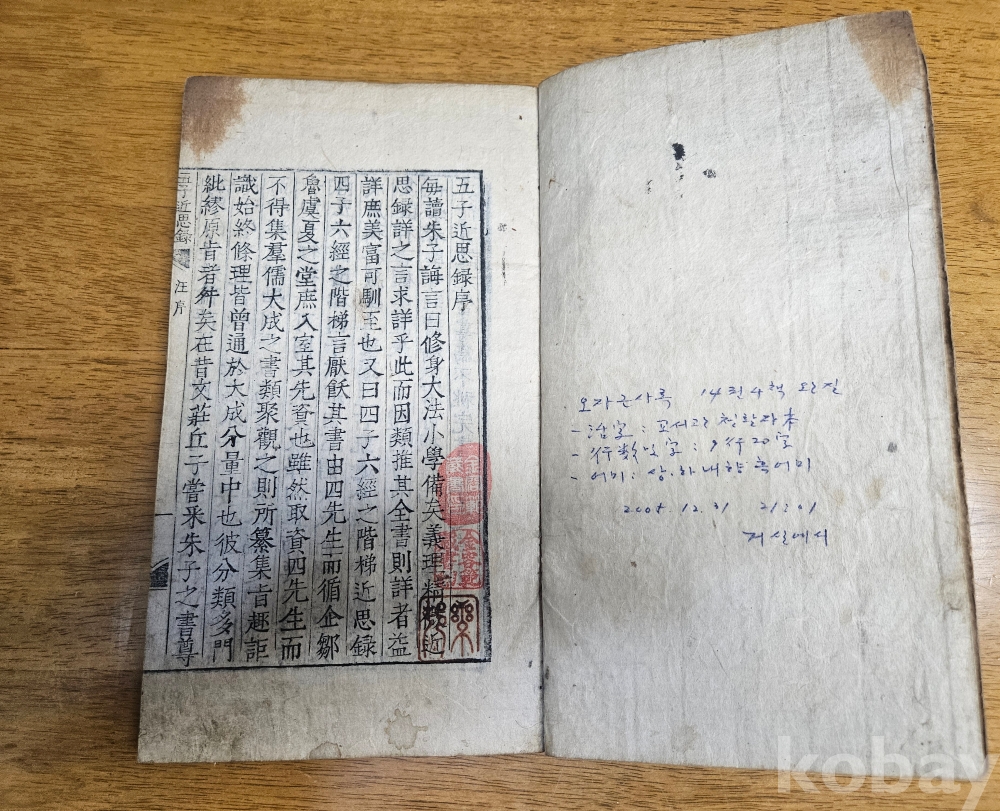 五子近思録序
每讀朱子誨言曰修身大法小學備矣義理精微近
思録詳之言求詳乎此而因類推其全書則詳者益
詳庶美富可馴至也又曰四子六經之階梯近思録
四子六經之階梯言厭飫其書由四先生而循企鄒
魯虞夏之堂庶入室其先資也雖然取資四先生而
不得集羣儒大成之書類聚觀之則所纂集旨趣詎
識始終條理皆曾通於大成分量中也彼分類多門
紕繆原旨者舛矣在昔文莊丘子嘗采朱子之書尊
五子近思錄
汪序
오자근사록 14권4책 완질
- 活字 : 교서관 철활자本
- 行數 및 字 : 9行20字
- 어미 : 상.하내향흑어미
12. 31
저실에서
kobay